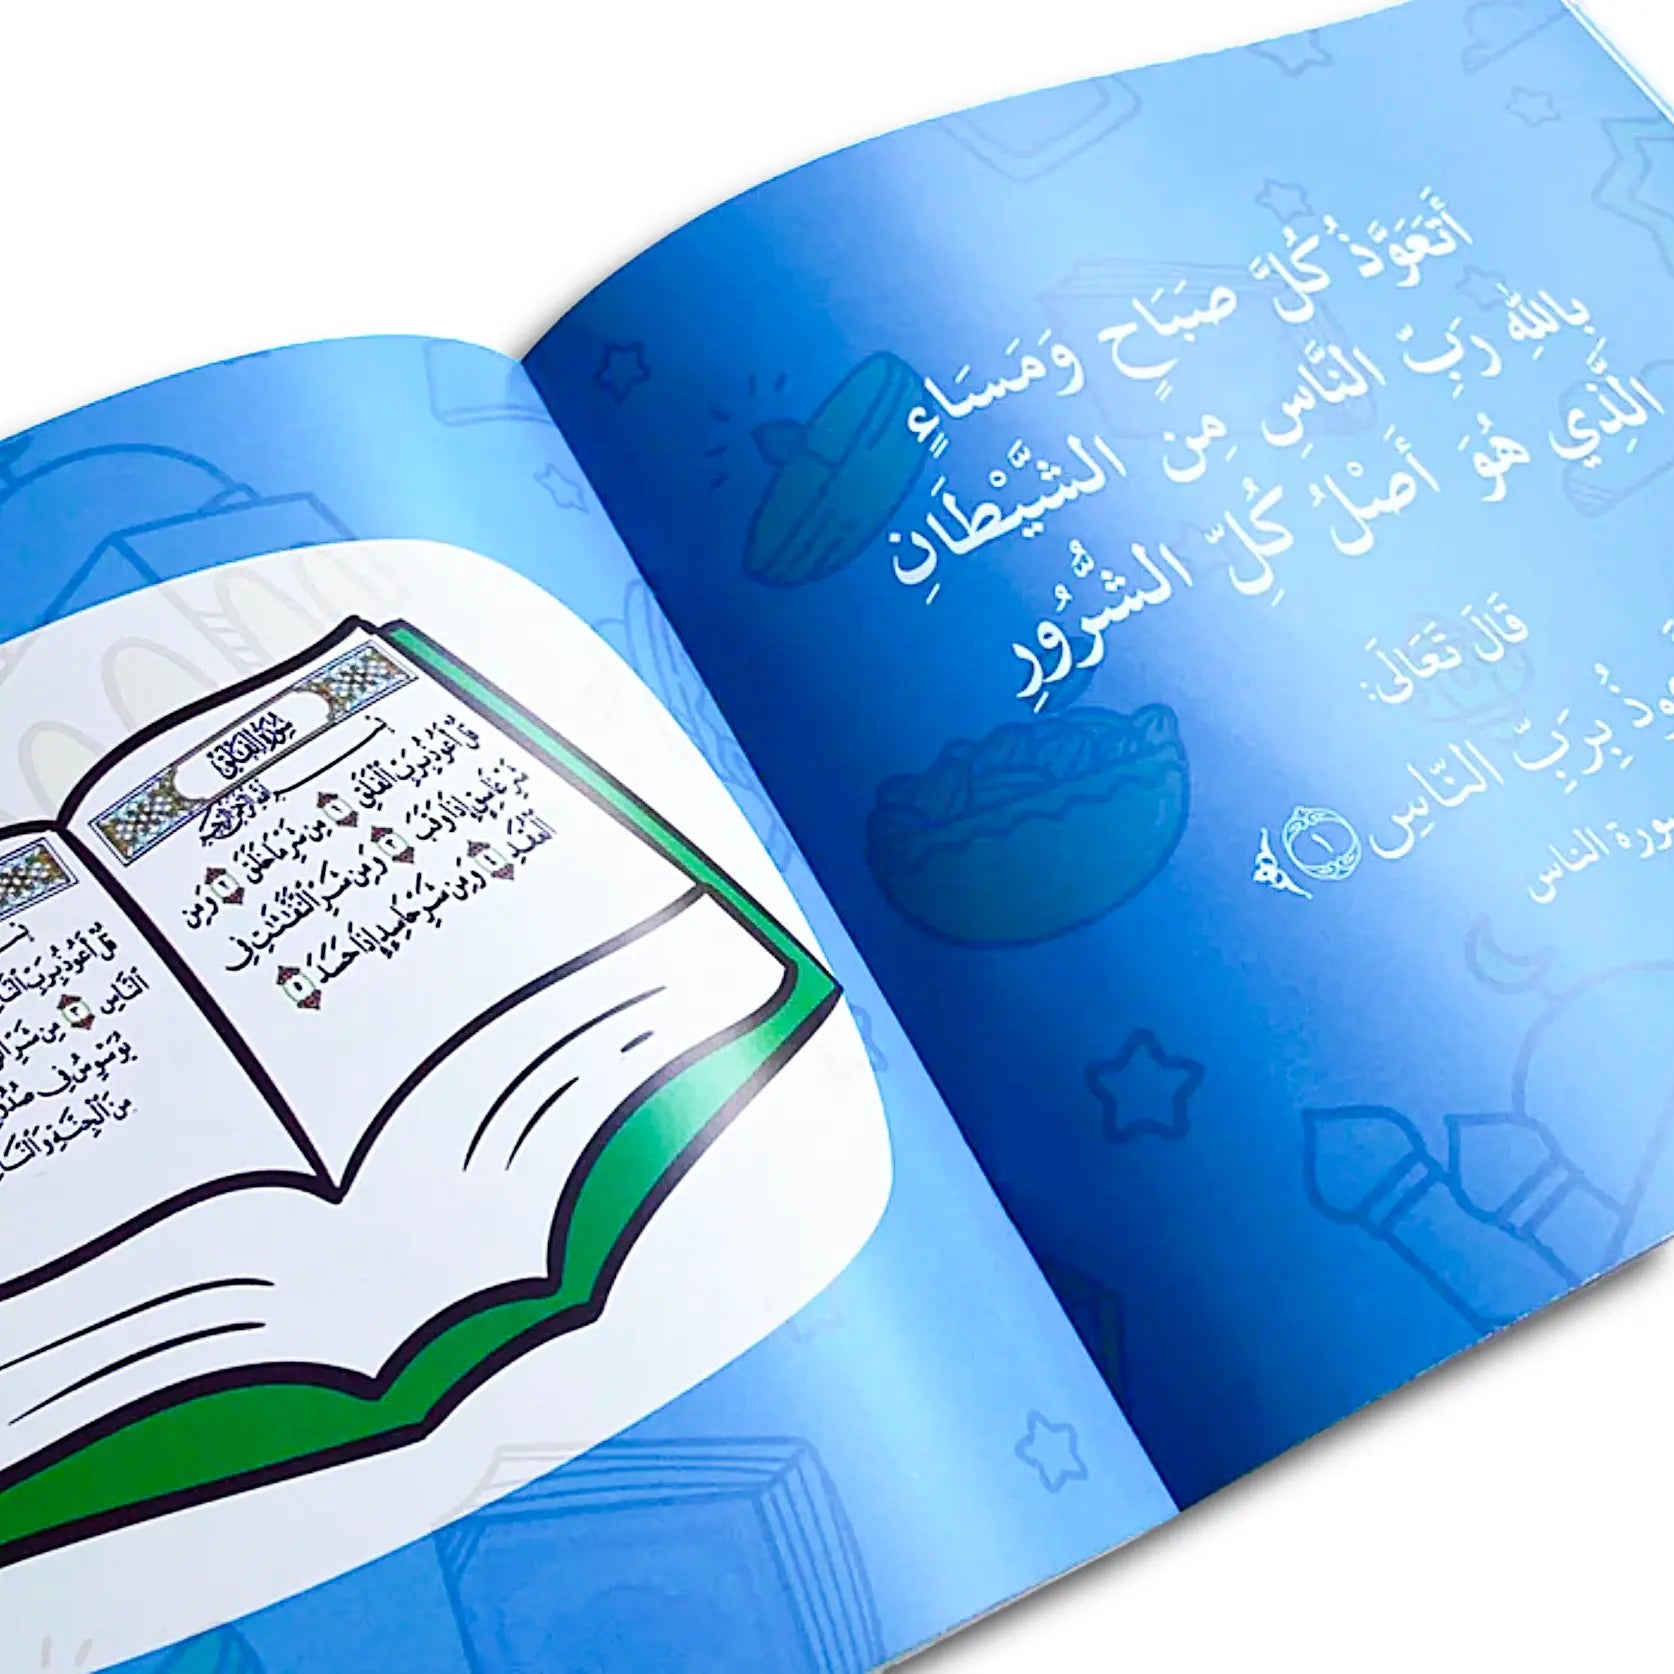 أَتَعَوَّذُ كُلَّ صَبَاحٍ وَمَسَاءٍ
بِاللَّهِ رَبِّ النَّاسِ مِن الشَّيْطَانِ
الَّذِي هُوَ أَصْلُ كُلِّ الشُّرُورِ
قَالَ تَعَالَى:
بِرَبِّ النَّاسِ ١
سورة الناس
سُورَةُ الْفَلَقِ
بِسْمِ اللَّهِ الرَّحْمَٰنِ الرَّحِيمِ
قُلْ أَعُوذُ بِرَبِّ ٱلْفَلَقِ ١ مِن شَرِّ مَا خَلَقَ ٢ وَمِن
شَرِّ غَاسِقٍ إِذَا وَقَبَ ٣ وَمِن شَرِّ ٱلنَّفَّٰثَٰتِ فِى
ٱلْعُقَدِ ٤ وَمِن شَرِّ حَاسِدٍ إِذَا حَسَدَ ٥
قُلْ أَعُوذُ بِرَبِّ
ٱلنَّاسِ ٢ مِن شَرِّ
يُوَسْوِسُ فِى
مِنَ ٱلْجِنَّةِ